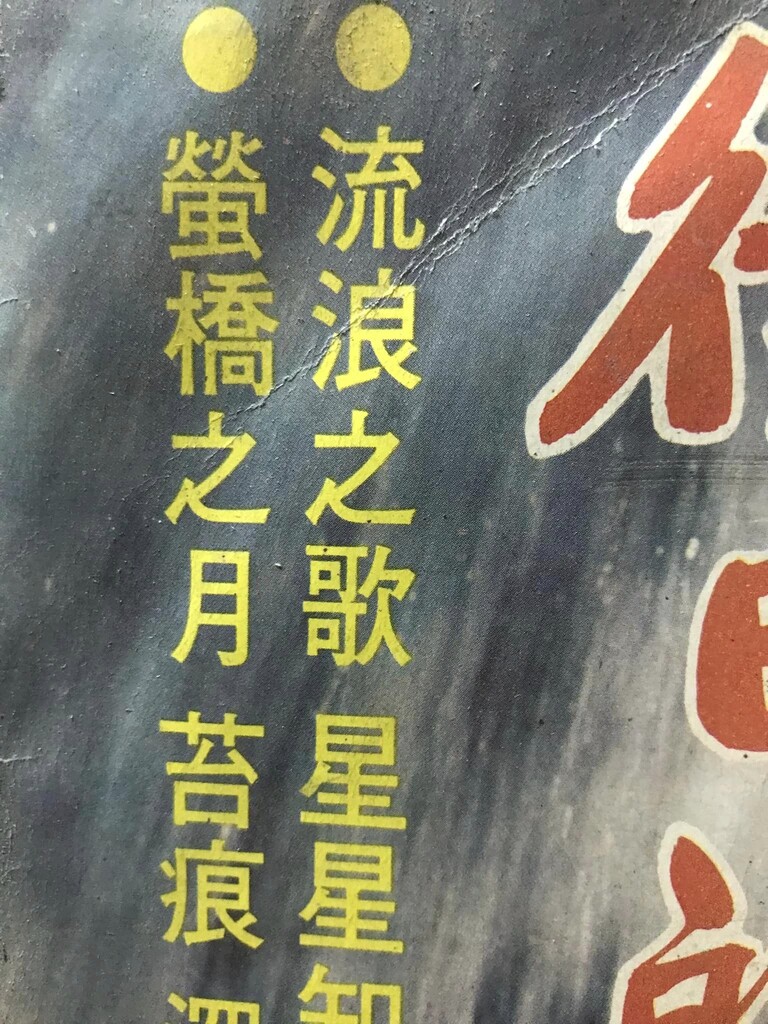 ●流浪之歌 星星知
●螢橋之月 苔痕